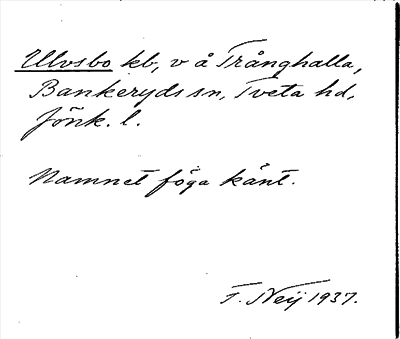 Ulvsbo kb, v å Trånghalla,
Bankeryds sn, Tveta hd,
Jönk. l.
Namnet föga känt.
F. Neij 1937.